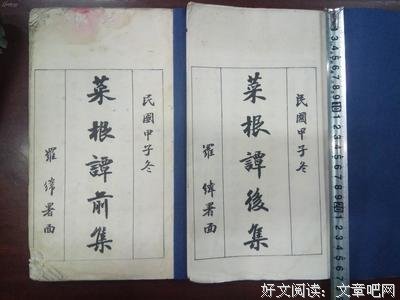 民國甲子冬
菜根譚前集
羅緯署面
民國甲子冬
菜根譚後集
羅緯署面
3 4 5 6 7 8 9 10 1 2 3 4 5 6 7 8 9 20 1 2 3 4 5 6 7
好文阅读:文章吧网